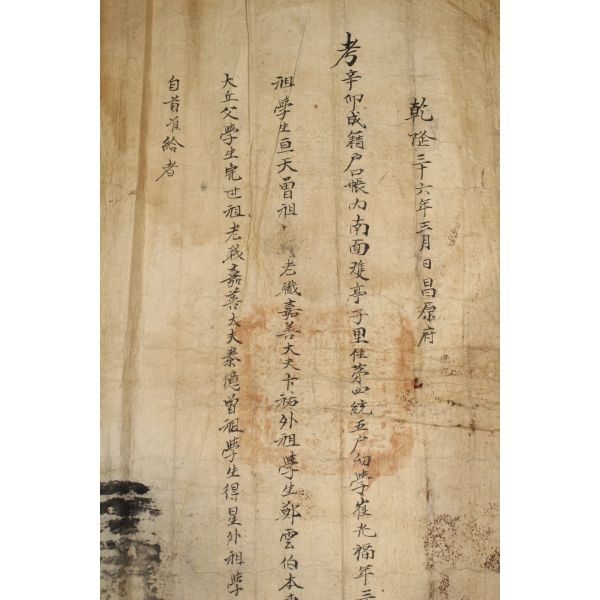 乾隆三十六年三月日昌原府
考辛卯成籍戶口帳內南面雙亭子里住第四統五戶幼學崔光福年三
祖學生亘天曾祖 老職嘉善大夫卞祐外祖學生鄭雲伯本
大丘父學生完世祖老職嘉善大夫泰億曾祖學生得星外祖學
自首准給者